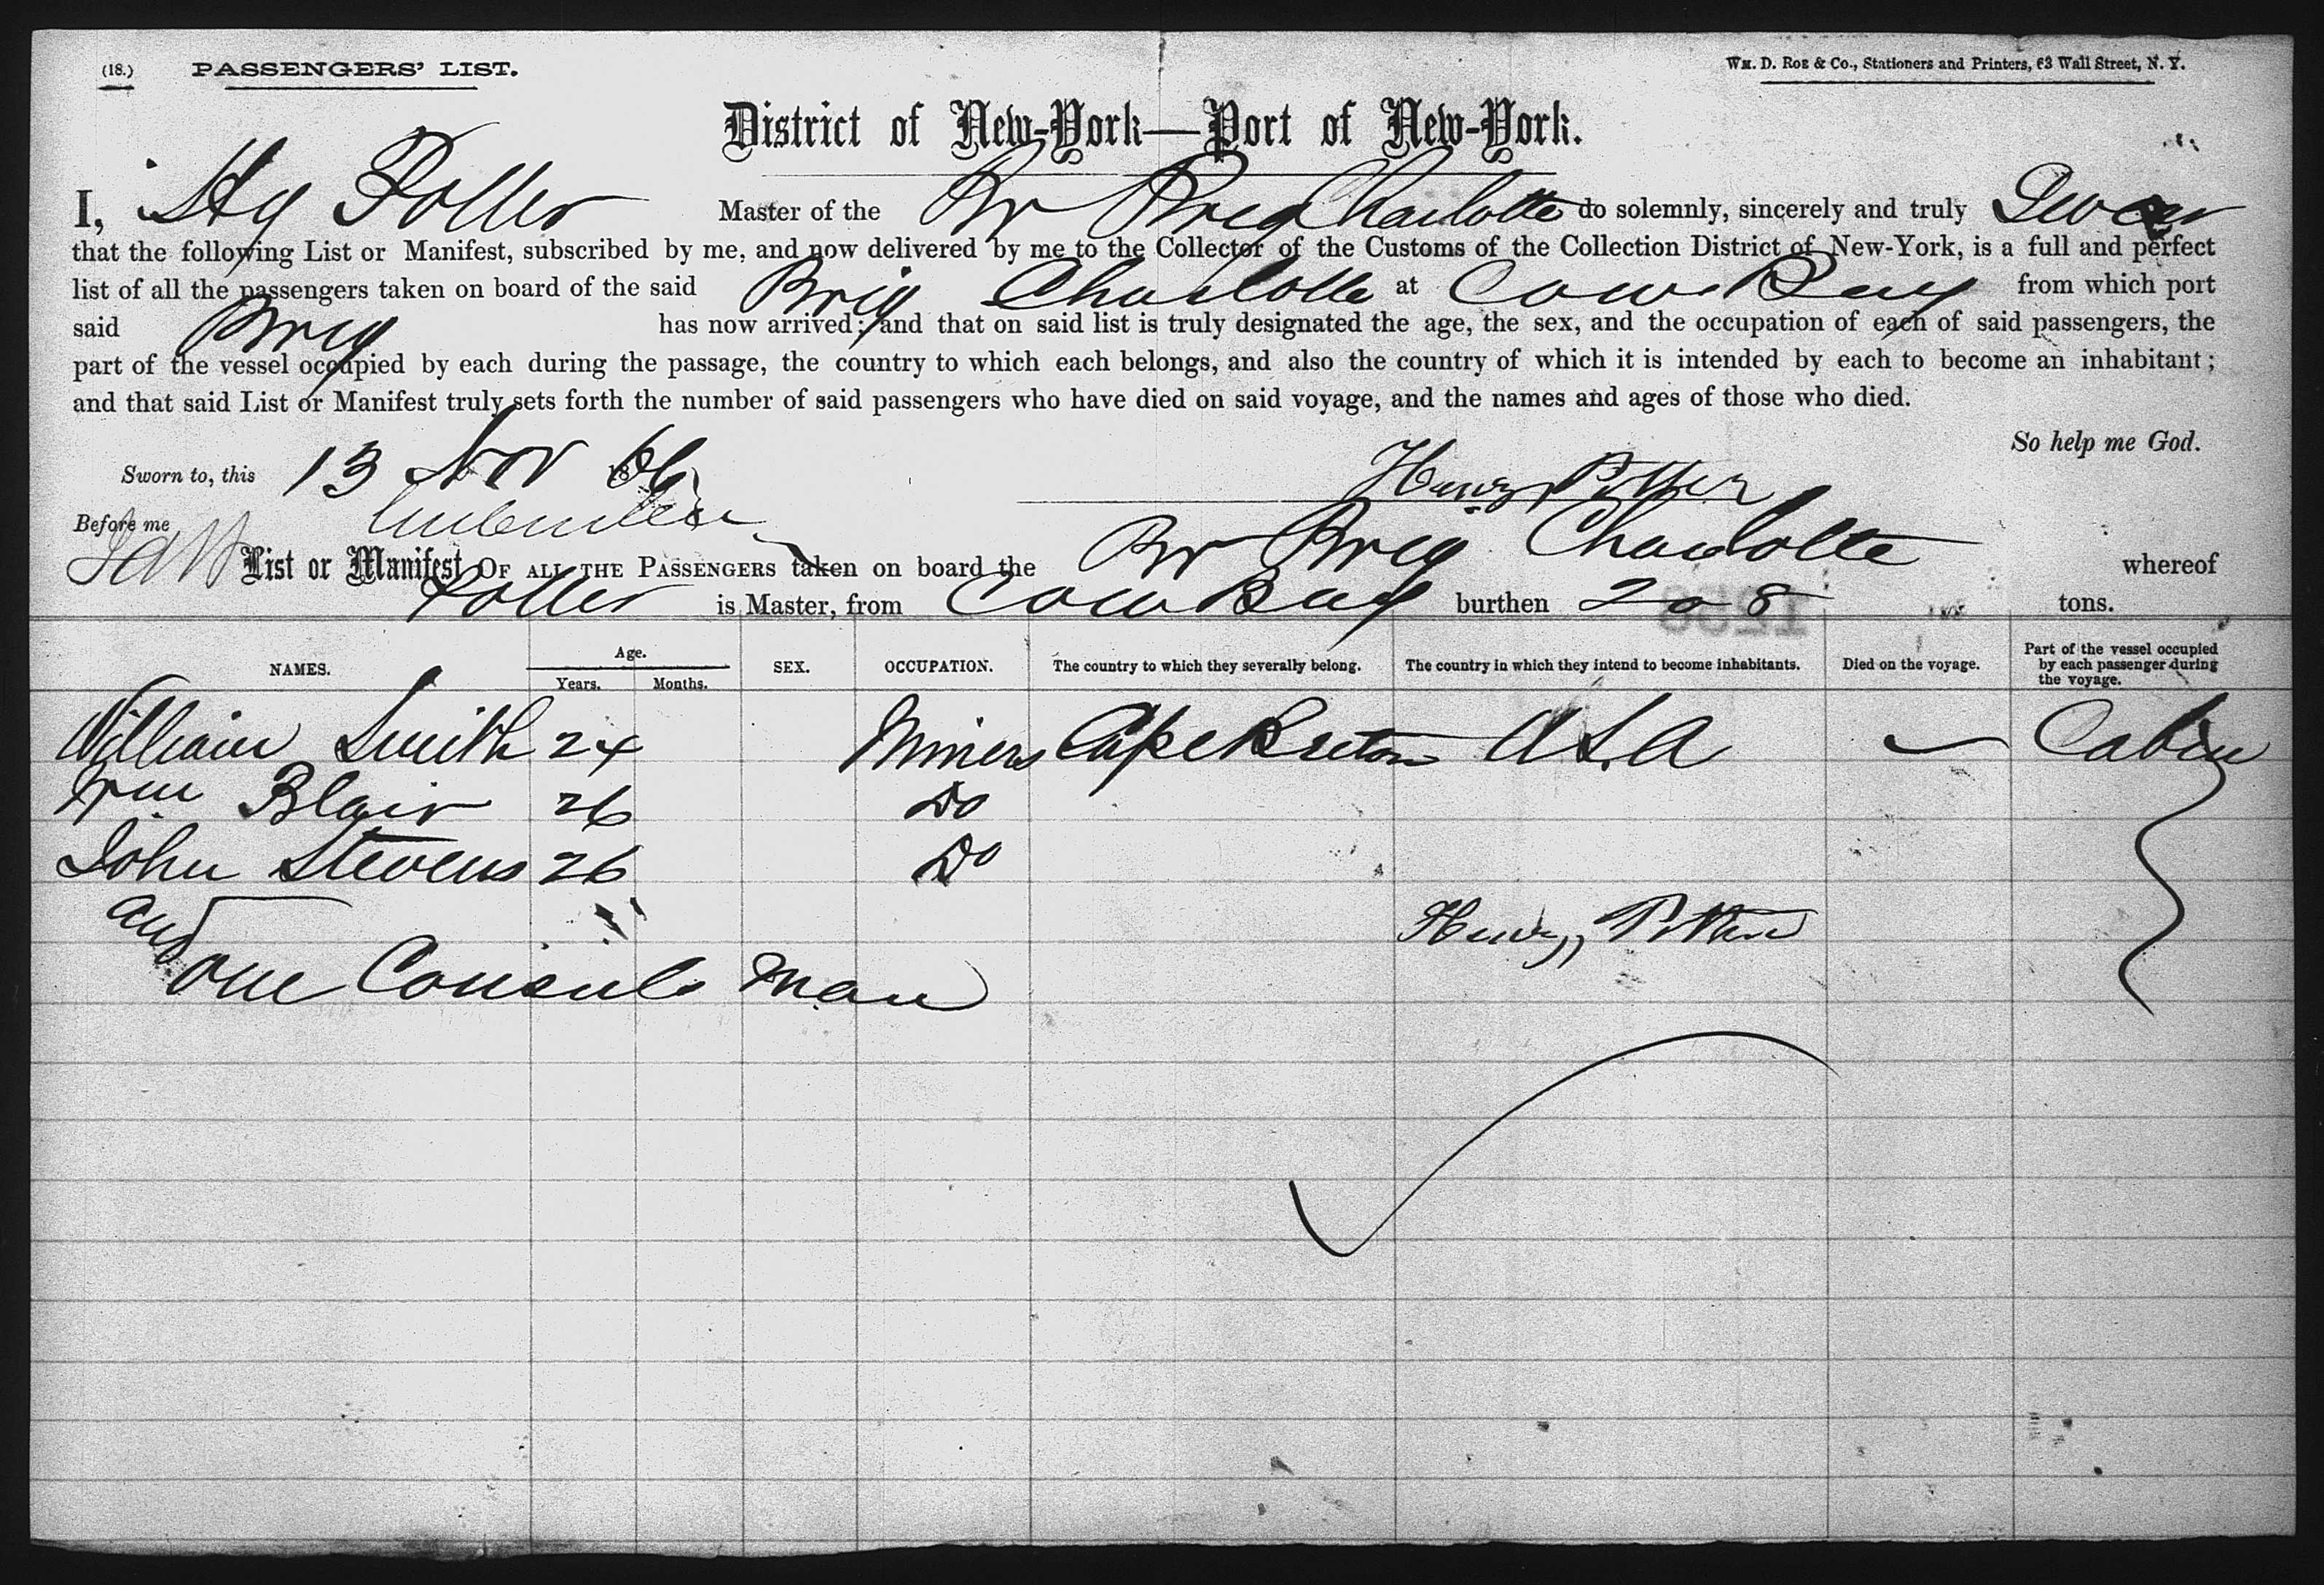 (18.) PASSENGERS' LIST.
WM. D. ROE & Co., Stationers and Printers, 63 Wall Street, N. Y.
District of New-York—Port of New-York.
I, Hy Potter Master of the Br Brig Charlotte do solemnly, sincerely and truly Swear
that the following List or Manifest, subscribed by me, and now delivered by me to the Collector of the Customs of the Collection District of New-York, is a full and perfect
list of all the passengers taken on board of the said Brig Charlotte at Cow Bay from which port
said Brig has now arrived; and that on said list is truly designated the age, the sex, and the occupation of each of said passengers, the
part of the vessel occupied by each during the passage, the country to which each belongs, and also the country of which it is intended by each to become an inhabitant;
and that said List or Manifest truly sets forth the number of said passengers who have died on said voyage, and the names and ages of those who died.
So help me God.
Sworn to, this 13 Nov 1866
Henry Potter
Before me
List or Manifest OF ALL THE PASSENGERS taken on board the Br Brig Charlotte whereof
Potter is Master, from Cow Bay burthen 208 tons.
NAMES. Age. Years. Months. SEX. OCCUPATION. The country to which they severally belong. The country in which they intend to become inhabitants. Died on the voyage. Part of the vessel occupied by each passenger during the voyage.
William Smith 24 Miners Cape Breton U.S.A Cabin
Wm Blair 26 Do
John Stevens 26 Do
and
Henry Potter
one Consuls man